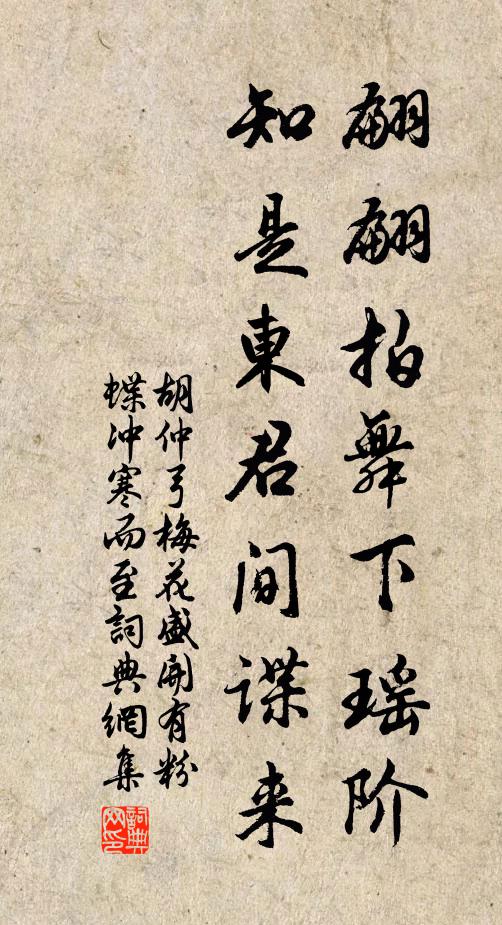 翩翩拍舞下瑶阶
知是東君间谍来
胡仲弓梅花盛開有粉
蝶冲寒而至詞典網集
詞典网印